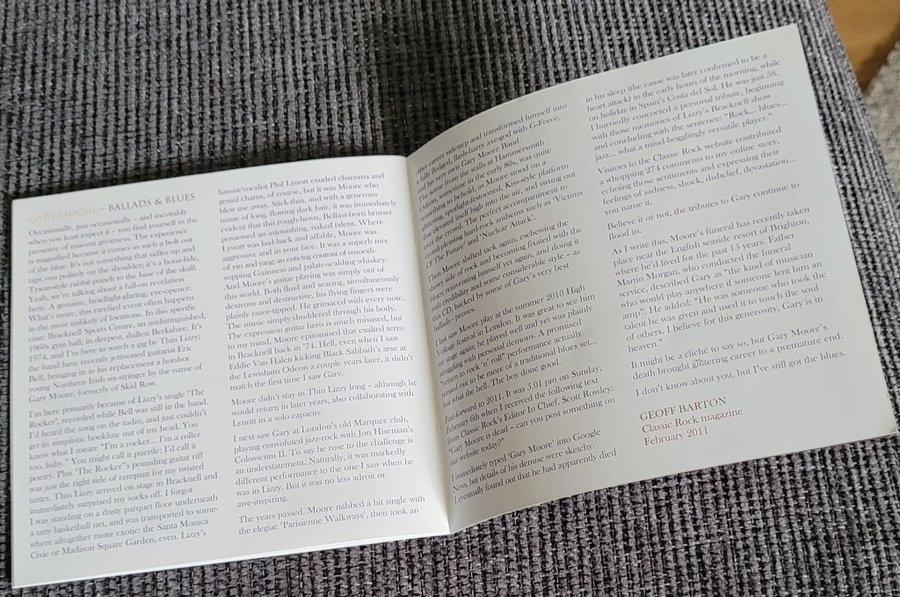 GARY MOORE – BALLADS & BLUES
Occasionally, just occasionally – and inevitably
when you least expect it – you find yourself in the
presence of nascent greatness. The experience
is magnified because it comes as such a bolt out
of the blue. It's not something that sidles up and
taps you politely on the shoulder; it's a bona-fide,
Tyson-style rabbit punch to the base of the skull.
Yeah, we're talking about a full-on revelation
here. A genuine, headlight-glaring, eye-opener.
What's more, this rarefied event often happens
in the most unlikely of locations. In this specific
case: Bracknell Sports Centre, an undistinguished,
1960s gym hall, in deepest, dullest Berkshire. It's
1974, and I'm here to watch a gig by Thin Lizzy;
the band have recently jettisoned guitarist Eric
Bell, bringing in as his replacement a hotshot
young Northern Irish six-stringer by the name of
Gary Moore, formerly of Skid Row.
I'm here primarily because of Lizzy's single 'The
Rocker', recorded while Bell was still in the band.
I'd heard the song on the radio, and just couldn't
get its simplistic hookline out of my head. You
know what I mean: "I'm a rocker... I'm a roller
too, baby." You might call it puerile; I'd call it
poetry. Plus 'The Rocker''s pounding guitar riff
was just the right side of rampant for my twisted
tastes. Thin Lizzy arrived on stage in Bracknell and
immediately surprised my socks off. I forgot
I was standing on a dusty parquet floor underneath
a tatty basketball net, and was transported to some-
where altogether more exotic: the Santa Monica
Civic or Madison Square Garden, even. Lizzy's
bassist/vocalist Phil Lynott exuded charisma and
genial charm, of course, but it was Moore who
blew me away. Stick-thin, and with a generous
mane of long, flowing dark hair, it was immediately
evident that this rough-hewn, Belfast-born bruiser
possessed an astonishing, naked talent. Where
Lynott was laid-back and affable, Moore was
aggressive and in your face. It was a superb mix
of yin and yang; an enticing contrast of smooth-
supping Guinness and palate-scalding whiskey.
And Moore's guitar playing was simply out of
this world. Both fluid and searing, simultaneously
dextrous and destructive, his flying fingers were
plainly razor-tipped. He grimaced with every note.
The music simply shuddered through his body.
The expression guitar hero is much misused, but
to my mind, Moore epitomised that exalted term
in Bracknell back in '74. Hell, even when I saw
Eddie Van Halen kicking Black Sabbath's arse at
the Lewisham Odeon a couple years later, it didn't
match the first time I saw Gary.
Moore didn't stay in Thin Lizzy long – although he
would return in later years, also collaborating with
Lynott in a solo capacity.
I next saw Gary at London's old Marquee club,
playing convoluted jazz-rock with Jon Hiseman's
Colosseum II. To say he rose to the challenge is
an understatement. Naturally, it was markedly
different performance to the one I saw when he
was in Lizzy. But it was no less adroit or
awe-inspiring.
The years passed. Moore nabbed a hit single with
the elegiac 'Parisienne Walkways', then took an
other career sidestep and transformed himself into
a fully fledged, flash-harry axe-god with G-Force,
and his very own Gary Moore Band.
The sense from the stalls at Hammersmith
Odeon, sometime in the early 80s, was quite
something to behold, as Moore stood on a
towering, strobe-festooned, Kiss-style platform
that elevated itself high into the air, and swung out
over the crowd. The perfect accompaniment to
crowd-pleasing hard-rock anthems such as 'Victims
Of The Future' and 'Nuclear Attack'.
Then Moore shifted tack again, eschewing the
showy side of rock and becoming fixated with the
blues, reinventing himself yet again, and doing it
with credibility and some considerable style – as
this CD, packed by some of Gary's very best
ballads, proves.
I last saw Moore play at the summer 2010 High
Voltage festival in London. It was great to see him
on stage again; he played well and yet was plainly
struggling with personal demons. A promised
"return to rock 'n' roll" performance actually
turned out to be more of a traditional blues set...
but what the hell. The boy done good.
Fast-forward to 2011. It was 5.01 pm on Sunday,
February 6th when I received the following text
from Classic Rock's Editor In Chief, Scott Rowley:
"Gary Moore is dead – can you post something on
our website today?"
I immediately typed 'Gary Moore' into Google
News, but details of his demise were sketchy.
I eventually found out that he had apparently died
in his sleep (the cause was later confirmed to be a
heart attack) in the early hours of the morning, while
on holiday in Spain's Costa del Sol. He was just 58.
I hurriedly concocted a personal tribute, beginning
with those memories of Lizzy's Bracknell show
and concluding with the sentence: "Rock... blues...
jazz... what a mind-boggingly versatile player."
Visitors to the Classic Rock website contributed
a whopping 274 comments to my online story,
echoing those sentiments and expressing their
feelings of sadness, shock, disbelief, devastation...
you name it.
Believe it or not, the tributes to Gary continue to
flood in.
As I write this, Moore's funeral has recently taken
place near the English seaside resort of Brighton,
where he'd lived for the past 15 years. Father
Martin Morgan, who conducted the funeral
service, described Gary as "the kind of musician
who would play anywhere if someone lent him an
amp". He added: "He was someone who took the
talent he was given and used it to touch the soul
of others. I believe for this generosity, Gary is in
heaven."
It might be a cliché to say so, but Gary Moore's
death brought a glittering career to a premature end.
I don't know about you, but I've still got the blues.
GEOFF BARTON
Classic Rock magazine
February 2011